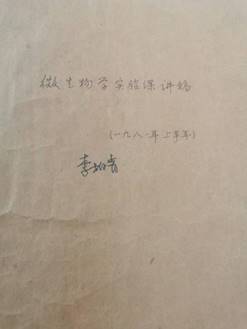 微生物学实验课讲稿
(一九八一年上半年)
李